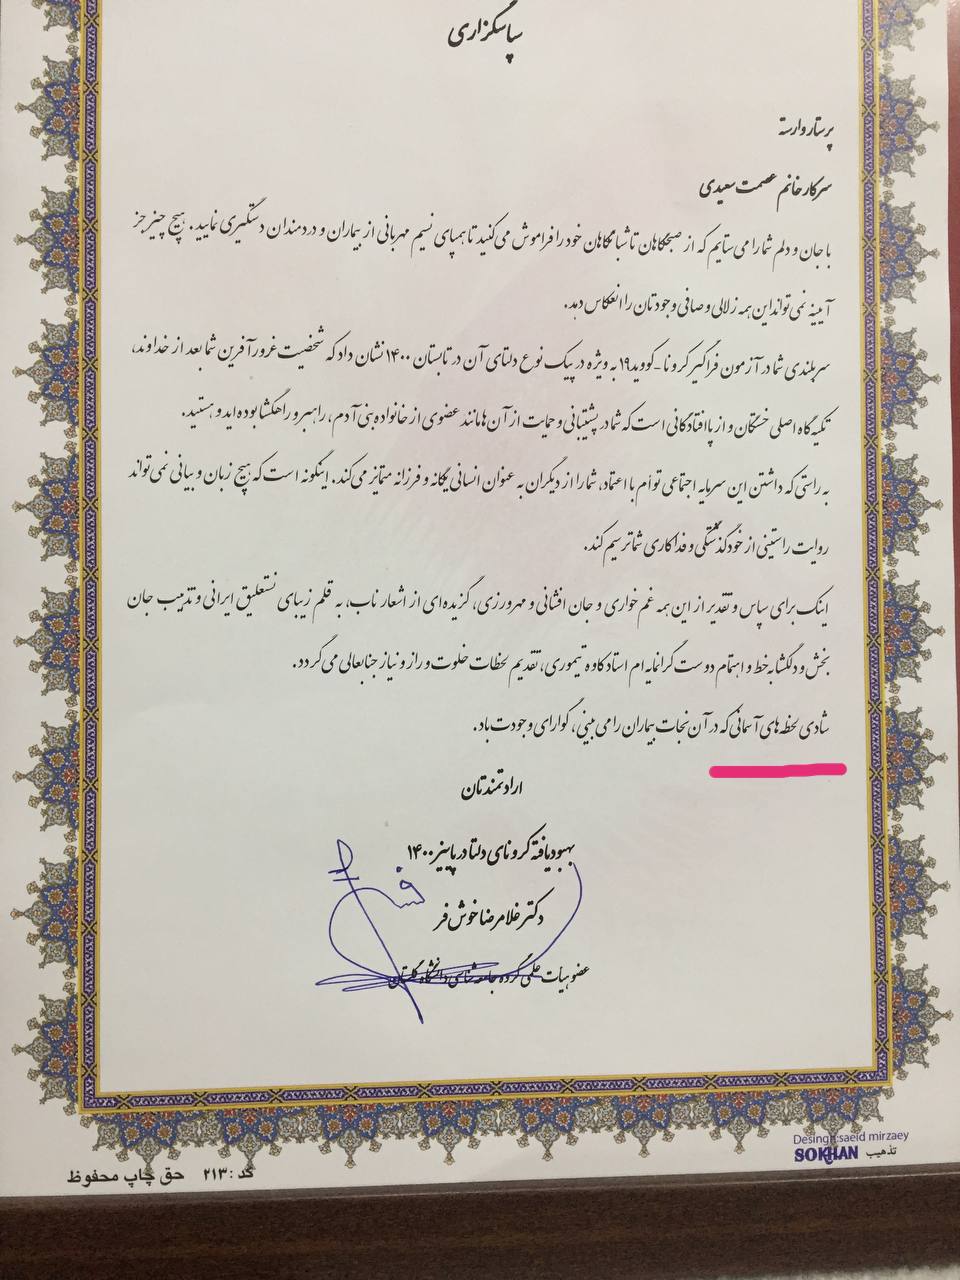 سپاسگزاری
پرستار وارسته
سرکار خانم عصمت سعیدی
با جان و دلم شما را می ستایم که از صبحگاهان تا شبانگاهان خود را فراموش می کنید تا همپای نسیم مهربانی از بیماران و دردمندان دستگیری نمایید. هیچ چیز جز
آیینه نمی تواند این همه زلالی و صافی وجودتان را انعکاس دهد.
سربلندی شما در آزمون فراگیر کرونا-کووید۱۹ به ویژه در پیک نوع دلتای آن در تابستان ۱۴۰۰ نشان داد که شخصیت غرورآفرین شما بعد از خداوند،
تکیه گاه اصلی خستگان و از پا افتادگانی است که شما در پشتیبانی و حمایت از آن ها مانند عضوی از خانواده بنی آدم، راهبر و راهگشا بوده اید و هستید.
به راستی که داشتن این سرمایه اجتماعی توأم با اعتماد، شما را از دیگران به عنوان انسانی یگانه و فرزانه متمایز می کند. اینگونه است که هیچ زبان و بیانی نمی تواند
روایت راستینی از خودگذشتگی و فداکاری شما ترسیم کند.
اینک برای سپاس و تقدیر از این همه غم خواری و جان افشانی و مهرورزی، گزیده ای از اشعار ناب، به قلم زیبای نستعلیق ایرانی و تذهیب جان
بخش و دلگشا به خط و اهتمام دوست گرانمایه ام استاد کاوه تیموری، تقدیم لحظات خلوت و راز و نیاز جنابعالی می گردد.
شادی لحظه های آسمانی که در آن نجات بیماران را می بینی، گوارای وجودت باد.
ارادتمندتان
بهبود یافته کرونای دلتا در پاییز ۱۴۰۰
دکتر غلامرضا خوش فر
عضو هیات علمی گروه جامعه شناسی دانشگاه گلستان
Desingh:saeid mirzaey
SOKHAN تذهیب
کد : ۲۱۳ حق چاپ محفوظ